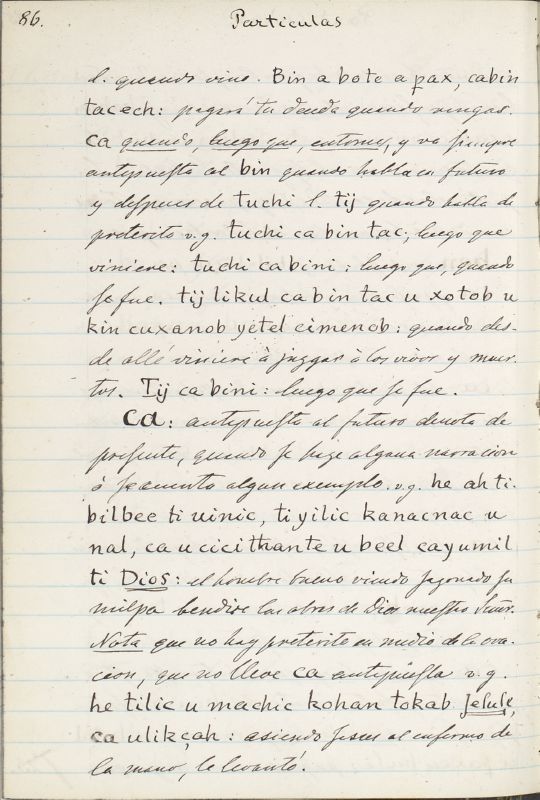 86.
Particulas
l. quando vino. Bin a bote a pax, cabin
tacech: pagará tu deuda quando vengas.
ca quando, luego que, entonces, y va siempre
antepuesta al bin quando habla en futuro
y despues de tuchi l. tij quando habla de
preterito v.g. tuchi ca bin tac, luego que
viniere: tuchi ca bini: luego que, quando
se fue. tij likul ca bin tac u xotob u
kin cuxanob yetel cimenob: quando des-
de allé viniere à juzgar à los vivos y muer-
tos. Tij ca bini: luego que se fue.
Ca: antepuesta al futuro denota de
presente, quando se haze alguna narracion
ò se cuenta algun exemplo. v.g. he ah ti-
bilbee ti uinic, ti yilic kanacnac u
nal, ca u cicithante u beel cayumil
ti Dios: el hombre bueno viendo sazonado su
milpa bendice las obras de Dios nuestro Señor.
Nota que no hay preterito en medio de la ora-
cion, que no lleve ca antepuesta v.g.
he tilic u machic kohan tokab Jesus,
ca ulikçah: asiendo Jesus al enfermo de
la mano, le levantó.